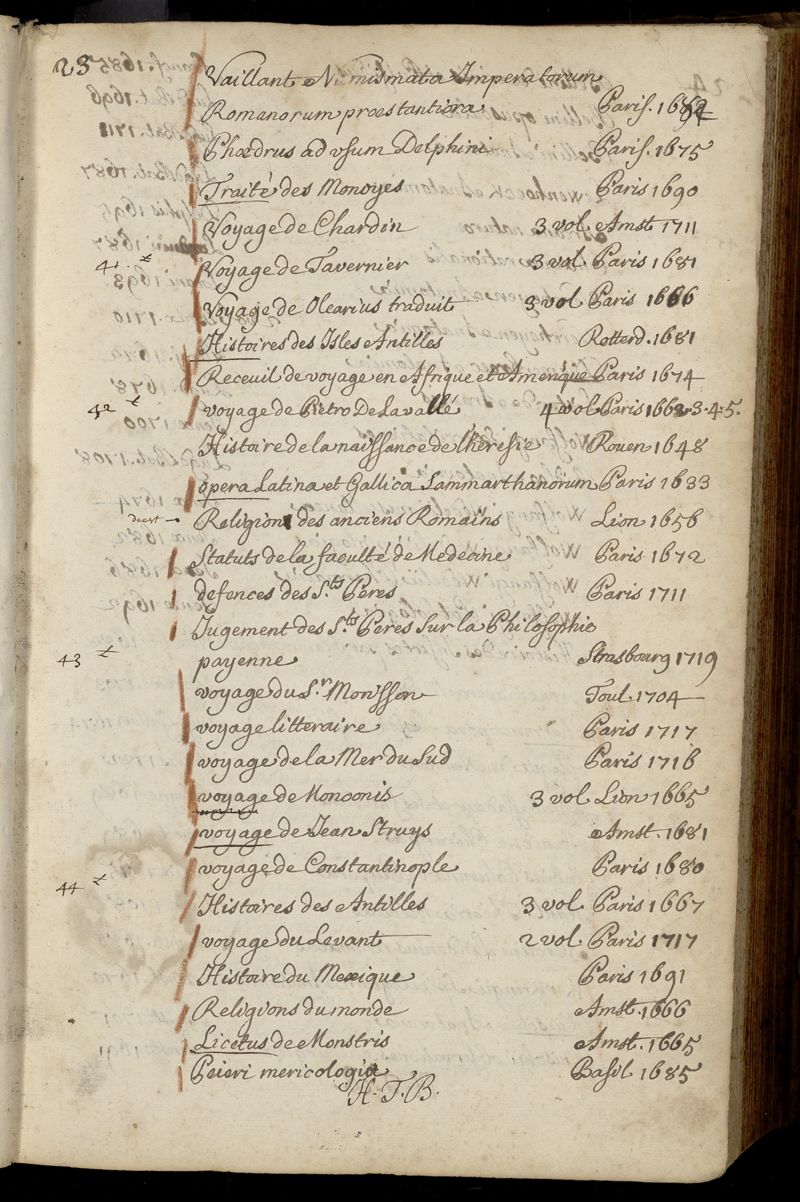 23
Vaillant Numismata Imperatorum
Romanorum præstantiora Paris. 1682
Phædrus ad vsum Delphini Paris. 1675
Traité des Monoyes Paris 1690
Voyage de Chardin 3 vol. Amst 1711
41. Voyage de Tavernier 3 vol. Paris 1681
Voyage de Olearius traduit 3 vol Paris 1666
Histoires des Isles Antilles Rotterd. 1681
Receuil de voyage en Afrique et Amerique Paris 1674
42 voyage de Pietro De la vallé 4 vol Paris 1662.3.4.5.
Histoire de la naissance de lheresie Rouen 1648
opera Latina et Gallica Sammarthanorum Paris 1633
deest Religion des anciens Romains Lion 1656
Statuts de la faculté de Medecine Paris 1672
defences des S.ts Peres Paris 1711
Jugement des S.ts Peres sur la Philosophie
43 payenne Strasbourg 1719
voyage du S.r Monsson Toul. 1704
voyage litteraire Paris 1717
voyage de la Mer du Sud Paris 1716
voyage de Monconis 3 vol Lion 1665
voyage de Jean Struys Amst. 1681
voyage de Constantinople Paris 1680
44 Histoires des Antilles 3 vol Paris 1667
voyage du Levant 2 vol Paris 1717
Histoire du Mexique Paris 1691
Religions du monde Amst. 1666
Licetus de Monstris Amst. 1665
Peieri mericologia Basil 1685
H. T. B.